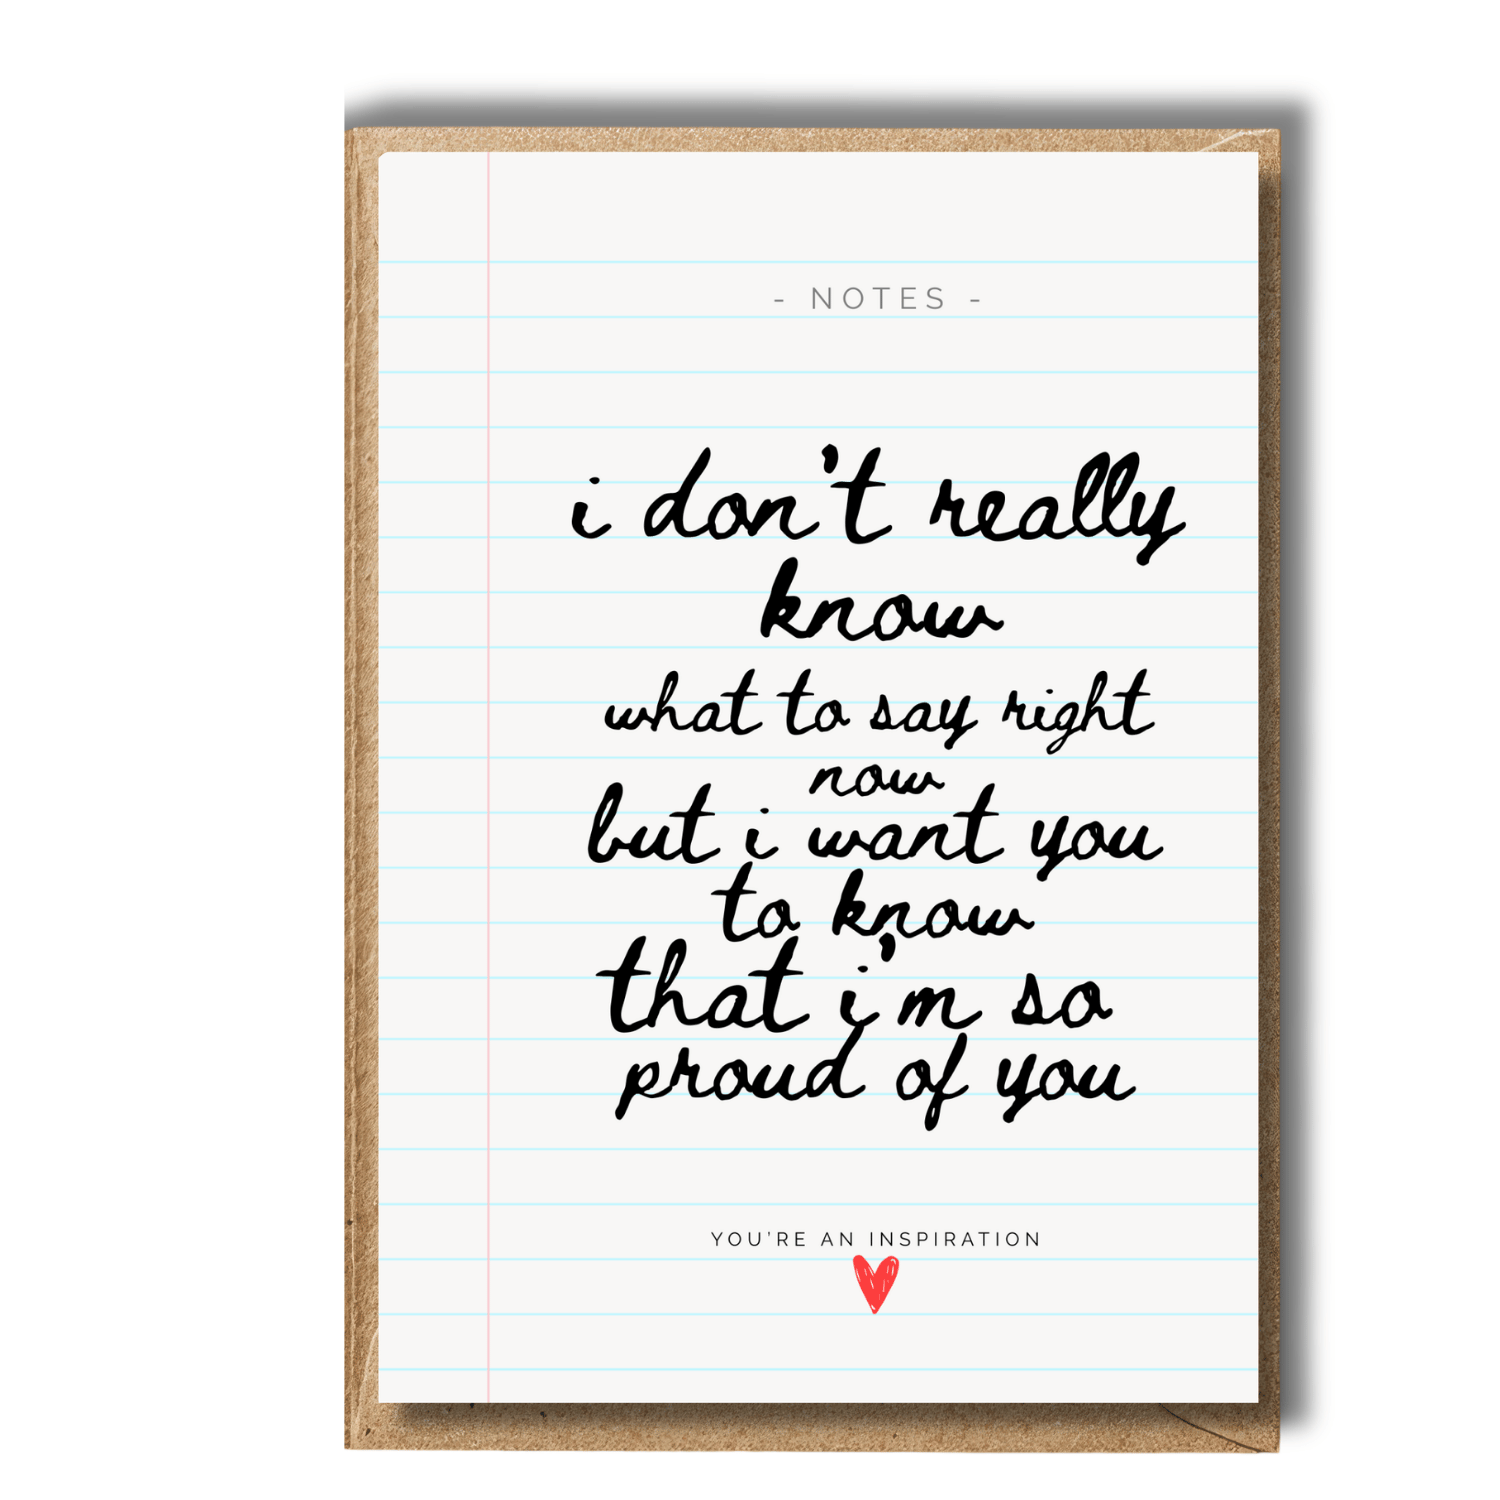 - NOTES -
i don't really
know
what to say right
now
but i want you
to know
that i'm so
proud of you
YOU'RE AN INSPIRATION